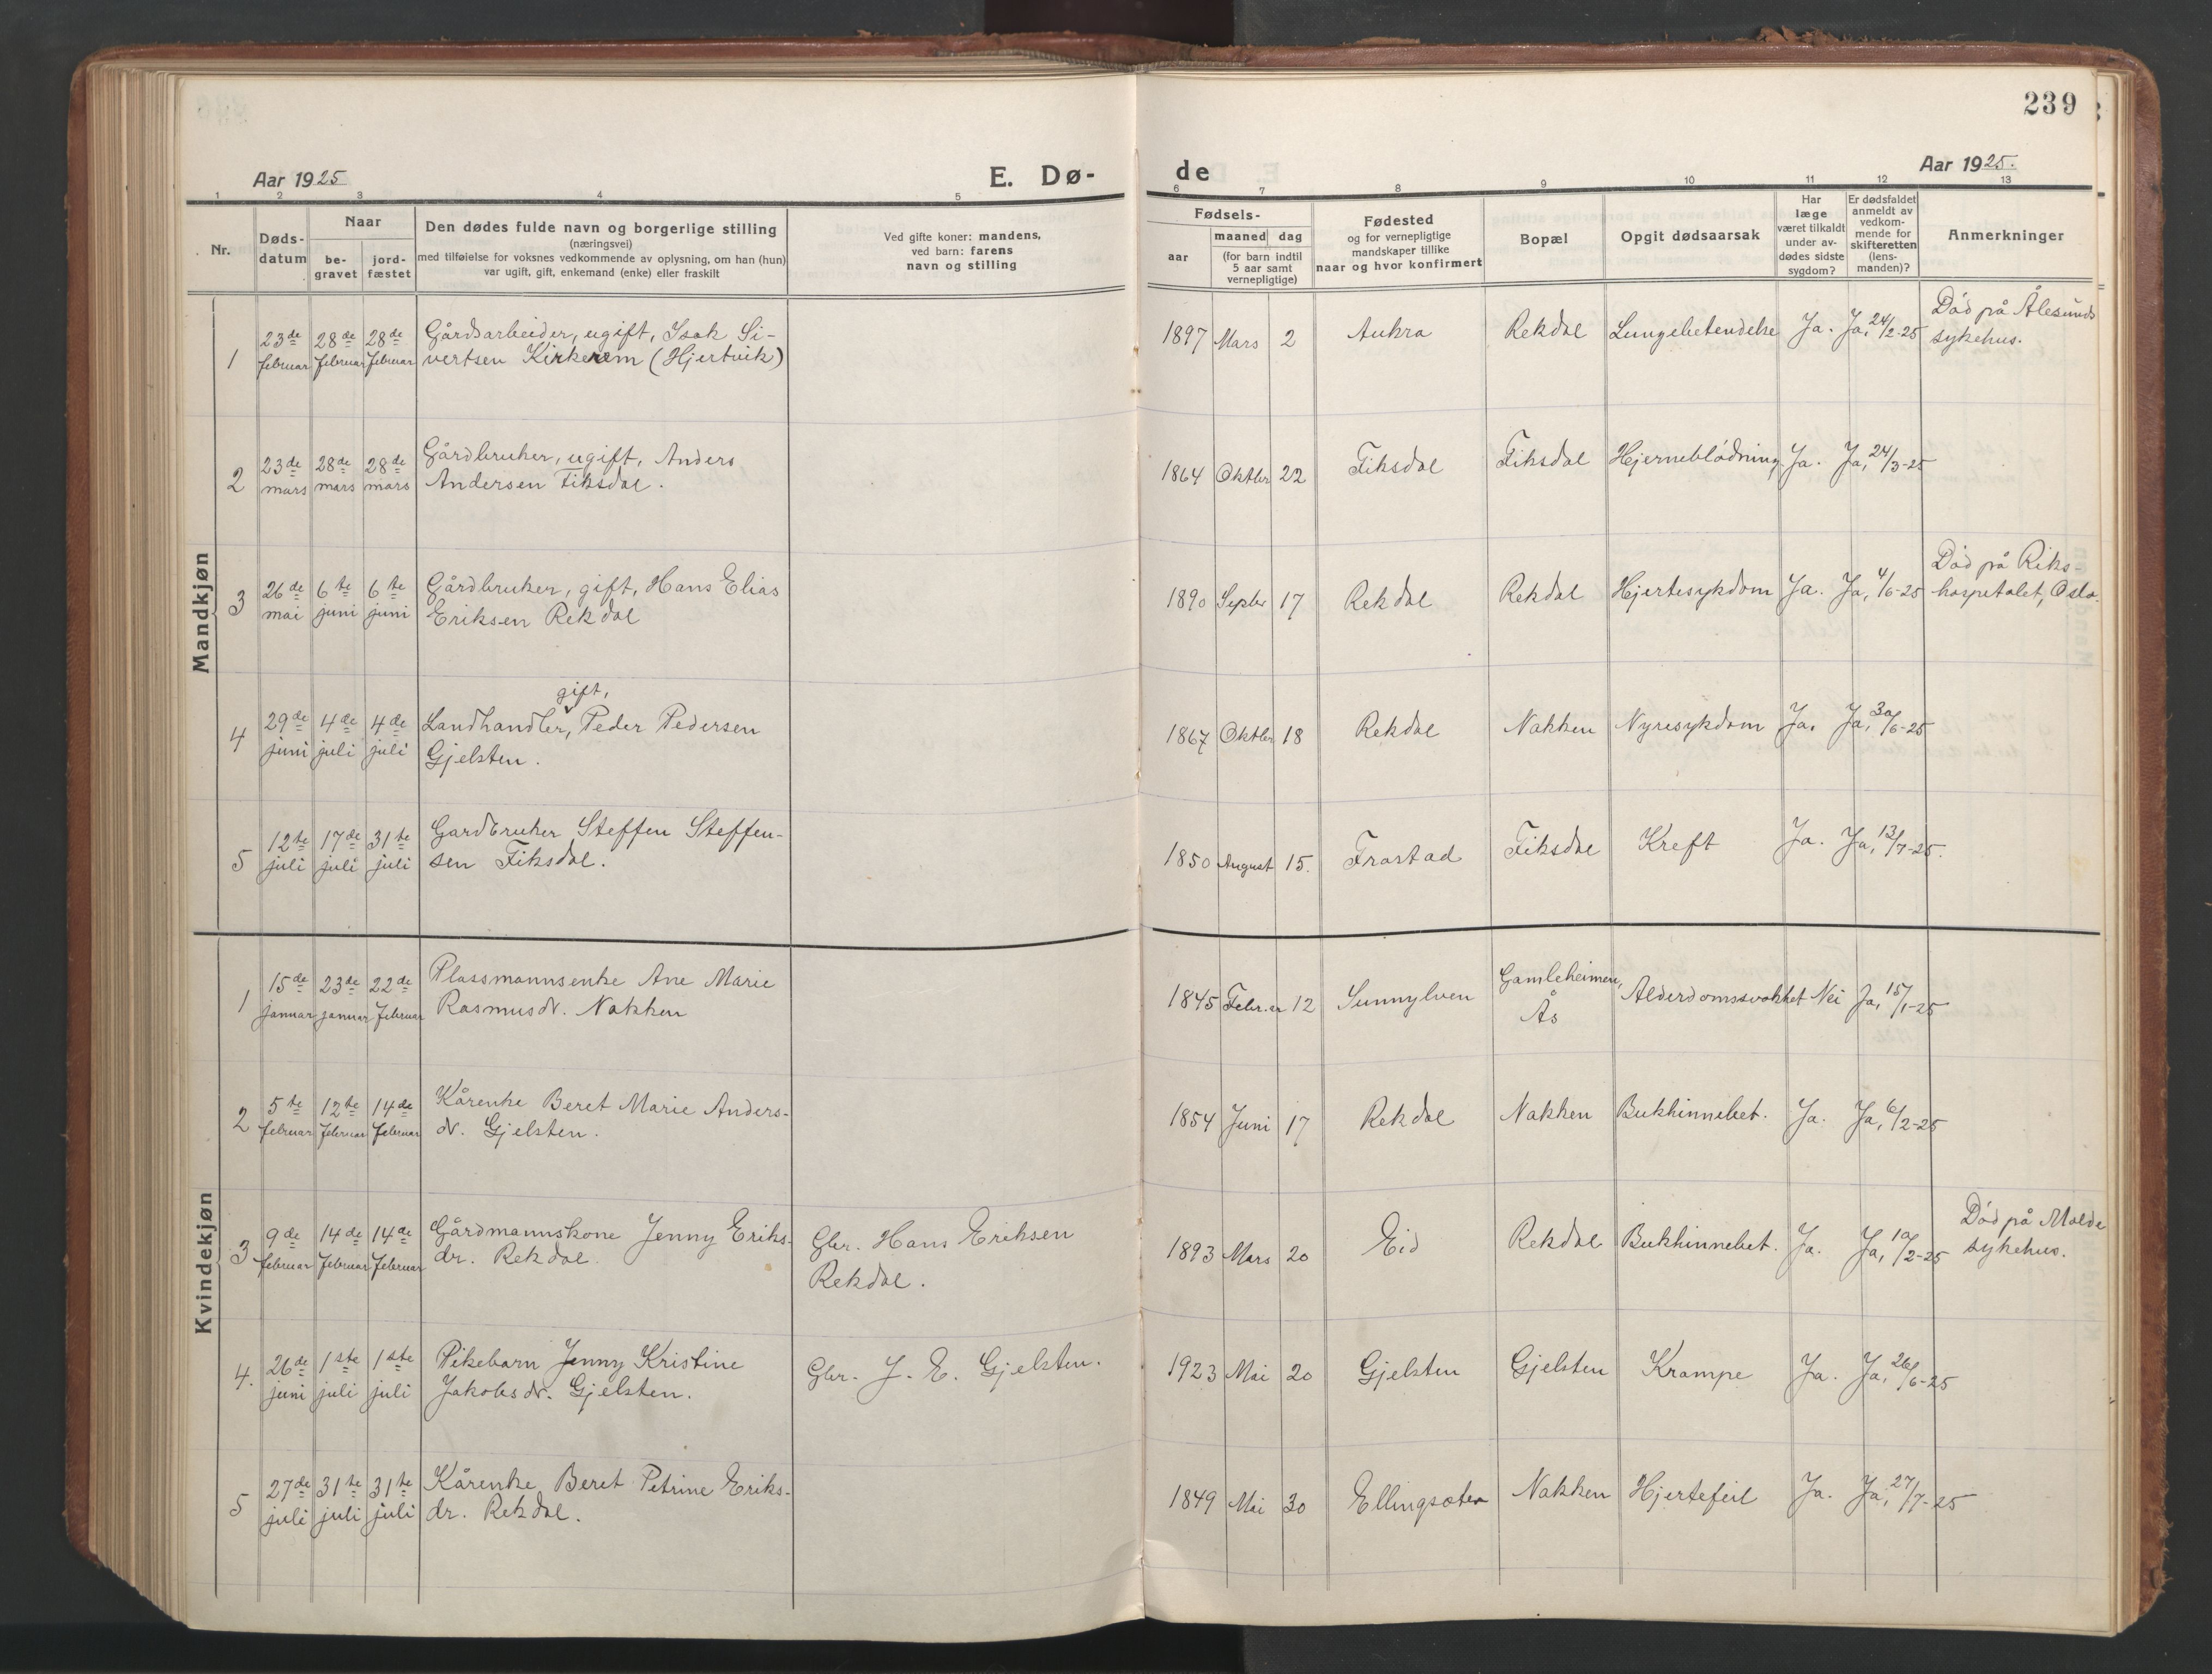 239
Aar 1925
E. Dø-
de
Aar 1925.
1 2 3 4 5 6 7 8 9 10 11 12 13
Nr.
Døds-
datum
Naar
be-
gravet
jord-
fæstet
Den dødes fulde navn og borgerlige stilling
(næringsvei)
med tilføielse for voksnes vedkommende av oplysning, om han (hun)
var ugift, gift, enkemand (enke) eller fraskilt
Ved gifte koner: mandens,
ved barn: farens
navn og stilling
Fødsels-
aar
maaned dag
(for barn indtil
5 aar samt
vernepligtige)
Fødested
og for vernepligtige
mandskaper tillike
naar og hvor konfirmert
Bopæl
Opgit dødsaarsak
Har
læge
været tilkaldt
under av-
dødes sidste
sygdom?
Er dødsfaldet
anmeldt av
vedkom-
mende for
skifteretten
(lens-
manden)?
Anmerkninger
Mandkjøn
1 23de februar 28de februar 28de februar
Gårdsarbeider, ugift, Isak Si-
vertsen Kirkerem (Hjertvik)
1897 Mars 2 Aukra Rekdal Lungebetendelse Ja. Ja, 24/2-25
Død på Ålesunds
sykehus.
2 23de mars 28de mars 28de mars
Gårdbruker, ugift, Anders
Andersen Fiksdal.
1864 Oktbr 22 Fiksdal Fiksdal Hjerneblødning Ja. Ja, 24/3-25
3 26de mai 6te juni 6te juni
Gårdbruker, gift, Hans Elias
Eriksen Rekdal
1890 Septbr 17 Rekdal Rekdal Hjertesykdom Ja. Ja, 4/6-25
Død på Riks-
hospetalet, Oslo.
4 29de juni 4de juli 4de juli
gift,
Landhandler, Peder Pedersen
Gjelsten.
1867 Oktbr 18 Rekdal Nakken Nyresykdom Ja. Ja, 30/6-25
5 12te juli 17de juli 31te juli
Gardbruker Steffen Steffen-
sen Fiksdal.
1850 August 15. Frostad Fiksdal Kreft Ja. Ja, 13/7-25.
Kvindekjøn
1 15de januar 23de januar 22de februar
Plassmannsenke Ane Marie
Rasmusdr. Nakken
1845 Febr.ar 12 Sunnylven Gamleheimen,
Ås
Alderdomssvakhet Nei Ja, 15/1-25
2 5te februar 12te februar 14de februar
Kårenke Beret Marie Anders-
dr. Gjelsten.
1854 Juni 17 Rekdal Nakken Bukhinnebet. Ja. Ja, 6/2-25
3 9de februar 14de februar 14de februar
Gårdmannskone Jenny Eriks-
dr. Rekdal.
Gbr. Hans Eriksen
Rekdal.
1893 Mars 20 Eid Rekdal Bukhinnebet. Ja. Ja, 10/2-25
Død på Molde
sykehus.
4. 26de juni 1ste juli 1ste juli
Pikebarn Jenny Kristine
Jakobsdr. Gjelsten.
Gbr. J. E. Gjelsten.
1923 Mai 20 Gjelsten Gjelsten Krampe Ja. Ja, 26/6-25
5 27de juli 31te juli 31te juli
Kårenke Beret Petrine Eriks-
dr. Rekdal.
1849 Mai 30 Ellingsøter Nakken Hjertefeil Ja. Ja, 27/7-25